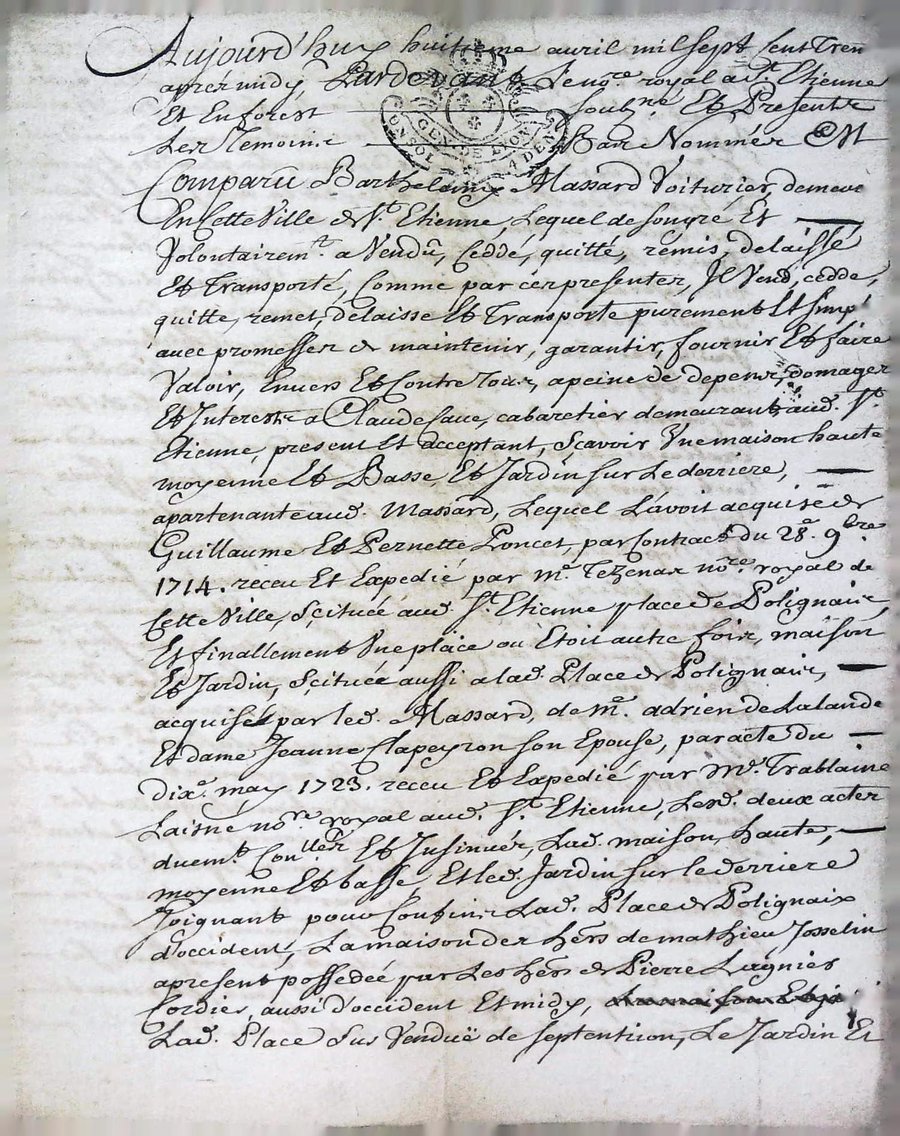 Aujourd'huy huitieme avril mil sept Cent Tren
apres midy, Pardevant Le no.re royal a S.t Etienne
Et En forest Soub.né Et Presents
Les Temoins Bas Nommés Est
GEN DE LYON
CONSOL 4 DEN
Comparu Barthelemy Massard Voiturier, demeu
En Cette Ville de S.t Etienne, Lequel de son gré Et
Volontairem.t a Vendû, Ceddé, quitté, remis, delaissé
Et Transporté, Comme par ces presentes, Il Vend, cedde,
quitte, remet, delaisse Et Transporte purement Et Simp.t
avec promesses de maintenir, garantir, fournir Et faire
Valoir, Envers Et Contre Tous, a peine de depens, domages
Et Interests a Claude faue, cabaretier demeurant aud. S.t
Etienne, present Et acceptant, Sçavoir Une maison haute
moyenne Et Basse, Et Jardin sur Le derriere,
apartenante aud. Massard, Lequel L'avoit acquise de
Guillaume Et Pernette Poncet, par Contract du 28.e 9bre
1714. receu Et Expedié par m.e Tezenas no.re royal de
Cette Ville, Scituée aud. S.t Etienne place de Polignais
Et finallement Une place ou Etoit autre fois, maison
Et Jardin, Scituée aussi a lad. Place de Polignais,
acquises par led. Massard, de m.e adrien de Lalande
Et dame Jeanne Clapeyron son Epouse, par acte du
dix.e may 1723. receu Et Expedié par M.e Trablaine
Laisné no.re royal aud. S.t Etienne, Lesd. deux actes
duem.t Con.llés Et Insinués, Lad. maison, haute,
moyenne Et basse, Et led. Jardin sur le derriere
Joignant pour Confins Lad. Place de Polignais
d'occident, La maison des h.ers de mathieu Josselin
a present possedée par Les h.ers de Pierre Lagniés
Cordier, aussi d'occident Et midy,
Lad. Place Sus Venduë de septentrion, Le Jardin Et